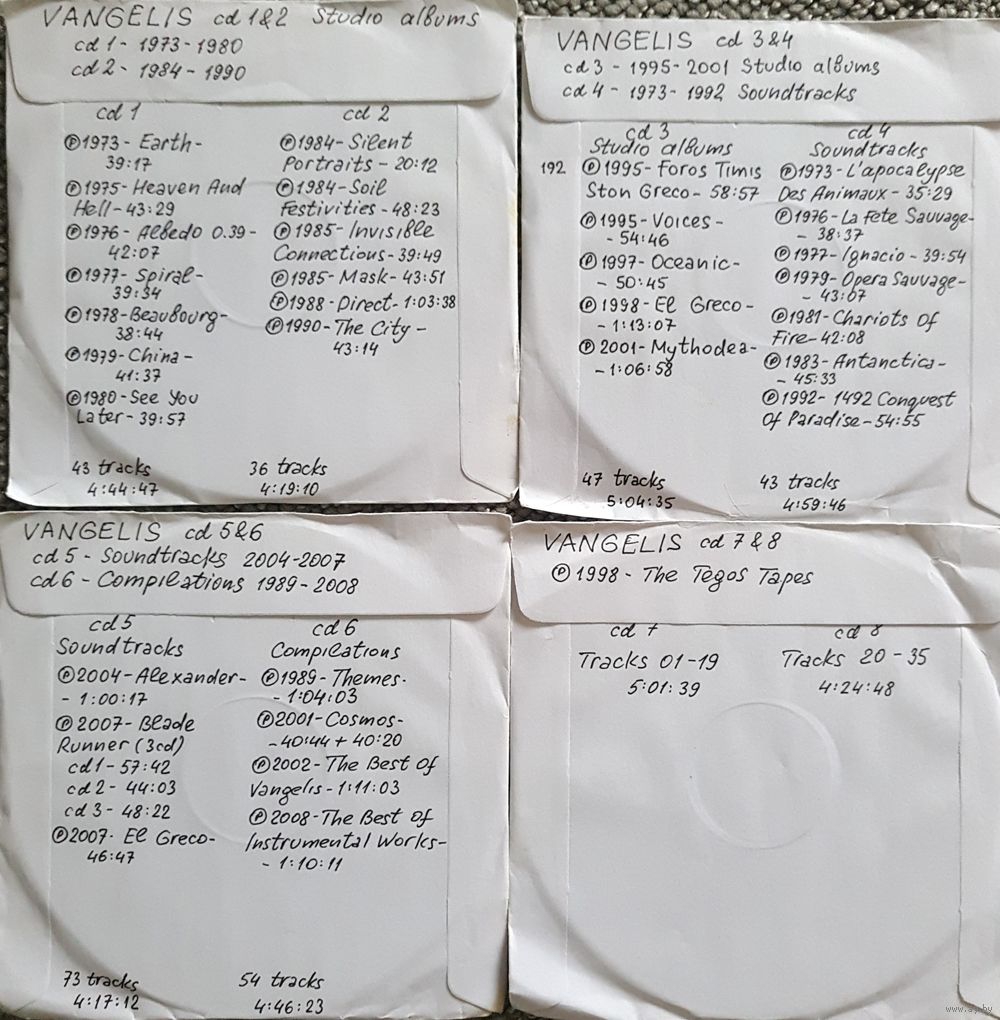 VANGELIS cd 1&2 Studio albums
cd 1 - 1973-1980
cd 2 - 1984-1990
cd 1
Ⓟ1973- Earth-
39:17
Ⓟ1975- Heaven And
Hell-43:29
Ⓟ1976- Albedo 0.39-
42:07
Ⓟ1977- Spiral-
39:34
Ⓟ1978-Beaubourg-
38:44
Ⓟ1979-China-
41:37
Ⓟ1980-See You
Later-39:57
43 tracks
4:44:47
cd 2
Ⓟ1984-Silent
Portraits-20:12
Ⓟ1984-Soil
Festivities-48:23
Ⓟ1985-Invisible
Connections-39:49
Ⓟ1985-Mask-43:51
Ⓟ1988-Direct-1:03:38
Ⓟ1990-The City-
43:14
36 tracks
4:19:10
VANGELIS cd 3&4
cd 3 - 1995-2001 Studio albums
cd 4 - 1973-1992 Soundtracks
cd 3
Studio albums
192 Ⓟ1995-Foros Timis
Ston Greco-58:57
Ⓟ1995-Voices-
-54:46
Ⓟ1997-Oceanic-
-50:45
Ⓟ1998-El Greco-
-1:13:07
Ⓟ2001-Mythodea-
-1:06:58
47 tracks
5:04:35
cd 4
Soundtracks
Ⓟ1973-L'apocalypse
Des Animaux-35:29
Ⓟ1976-La Fete Sauvage-
-38:37
Ⓟ1977-Ignacio-39:54
Ⓟ1979-Opera Sauvage-
-43:07
Ⓟ1981-Chariots Of
Fire-42:08
Ⓟ1983-Antanctica-
-45:33
Ⓟ1992-1492 Conquest
Of Paradise-54:55
43 tracks
4:59:46
VANGELIS cd 5&6
cd 5 - Soundtracks 2004-2007
cd 6 - Compilations 1989-2008
cd 5
Soundtracks
Ⓟ2004-Alexander-
-1:00:17
Ⓟ2007-Blade
Runner (3cd)
cd 1-57:42
cd 2-44:03
cd 3-48:22
Ⓟ2007-El Greco-
46:47
73 tracks
4:17:12
cd 6
Compilations
Ⓟ1989-Themes-
-1:04:03
Ⓟ2001-Cosmos-
-40:44+40:20
Ⓟ2002-The Best Of
Vangelis-1:11:03
Ⓟ2008-The Best Of
Instrumental Works-
-1:10:11
54 tracks
4:46:23
VANGELIS cd 7&8
Ⓟ1998-The Tegos Tapes
cd 7
Tracks 01-19
5:01:39
cd 8
Tracks 20-35
4:24:48
www.ay.by